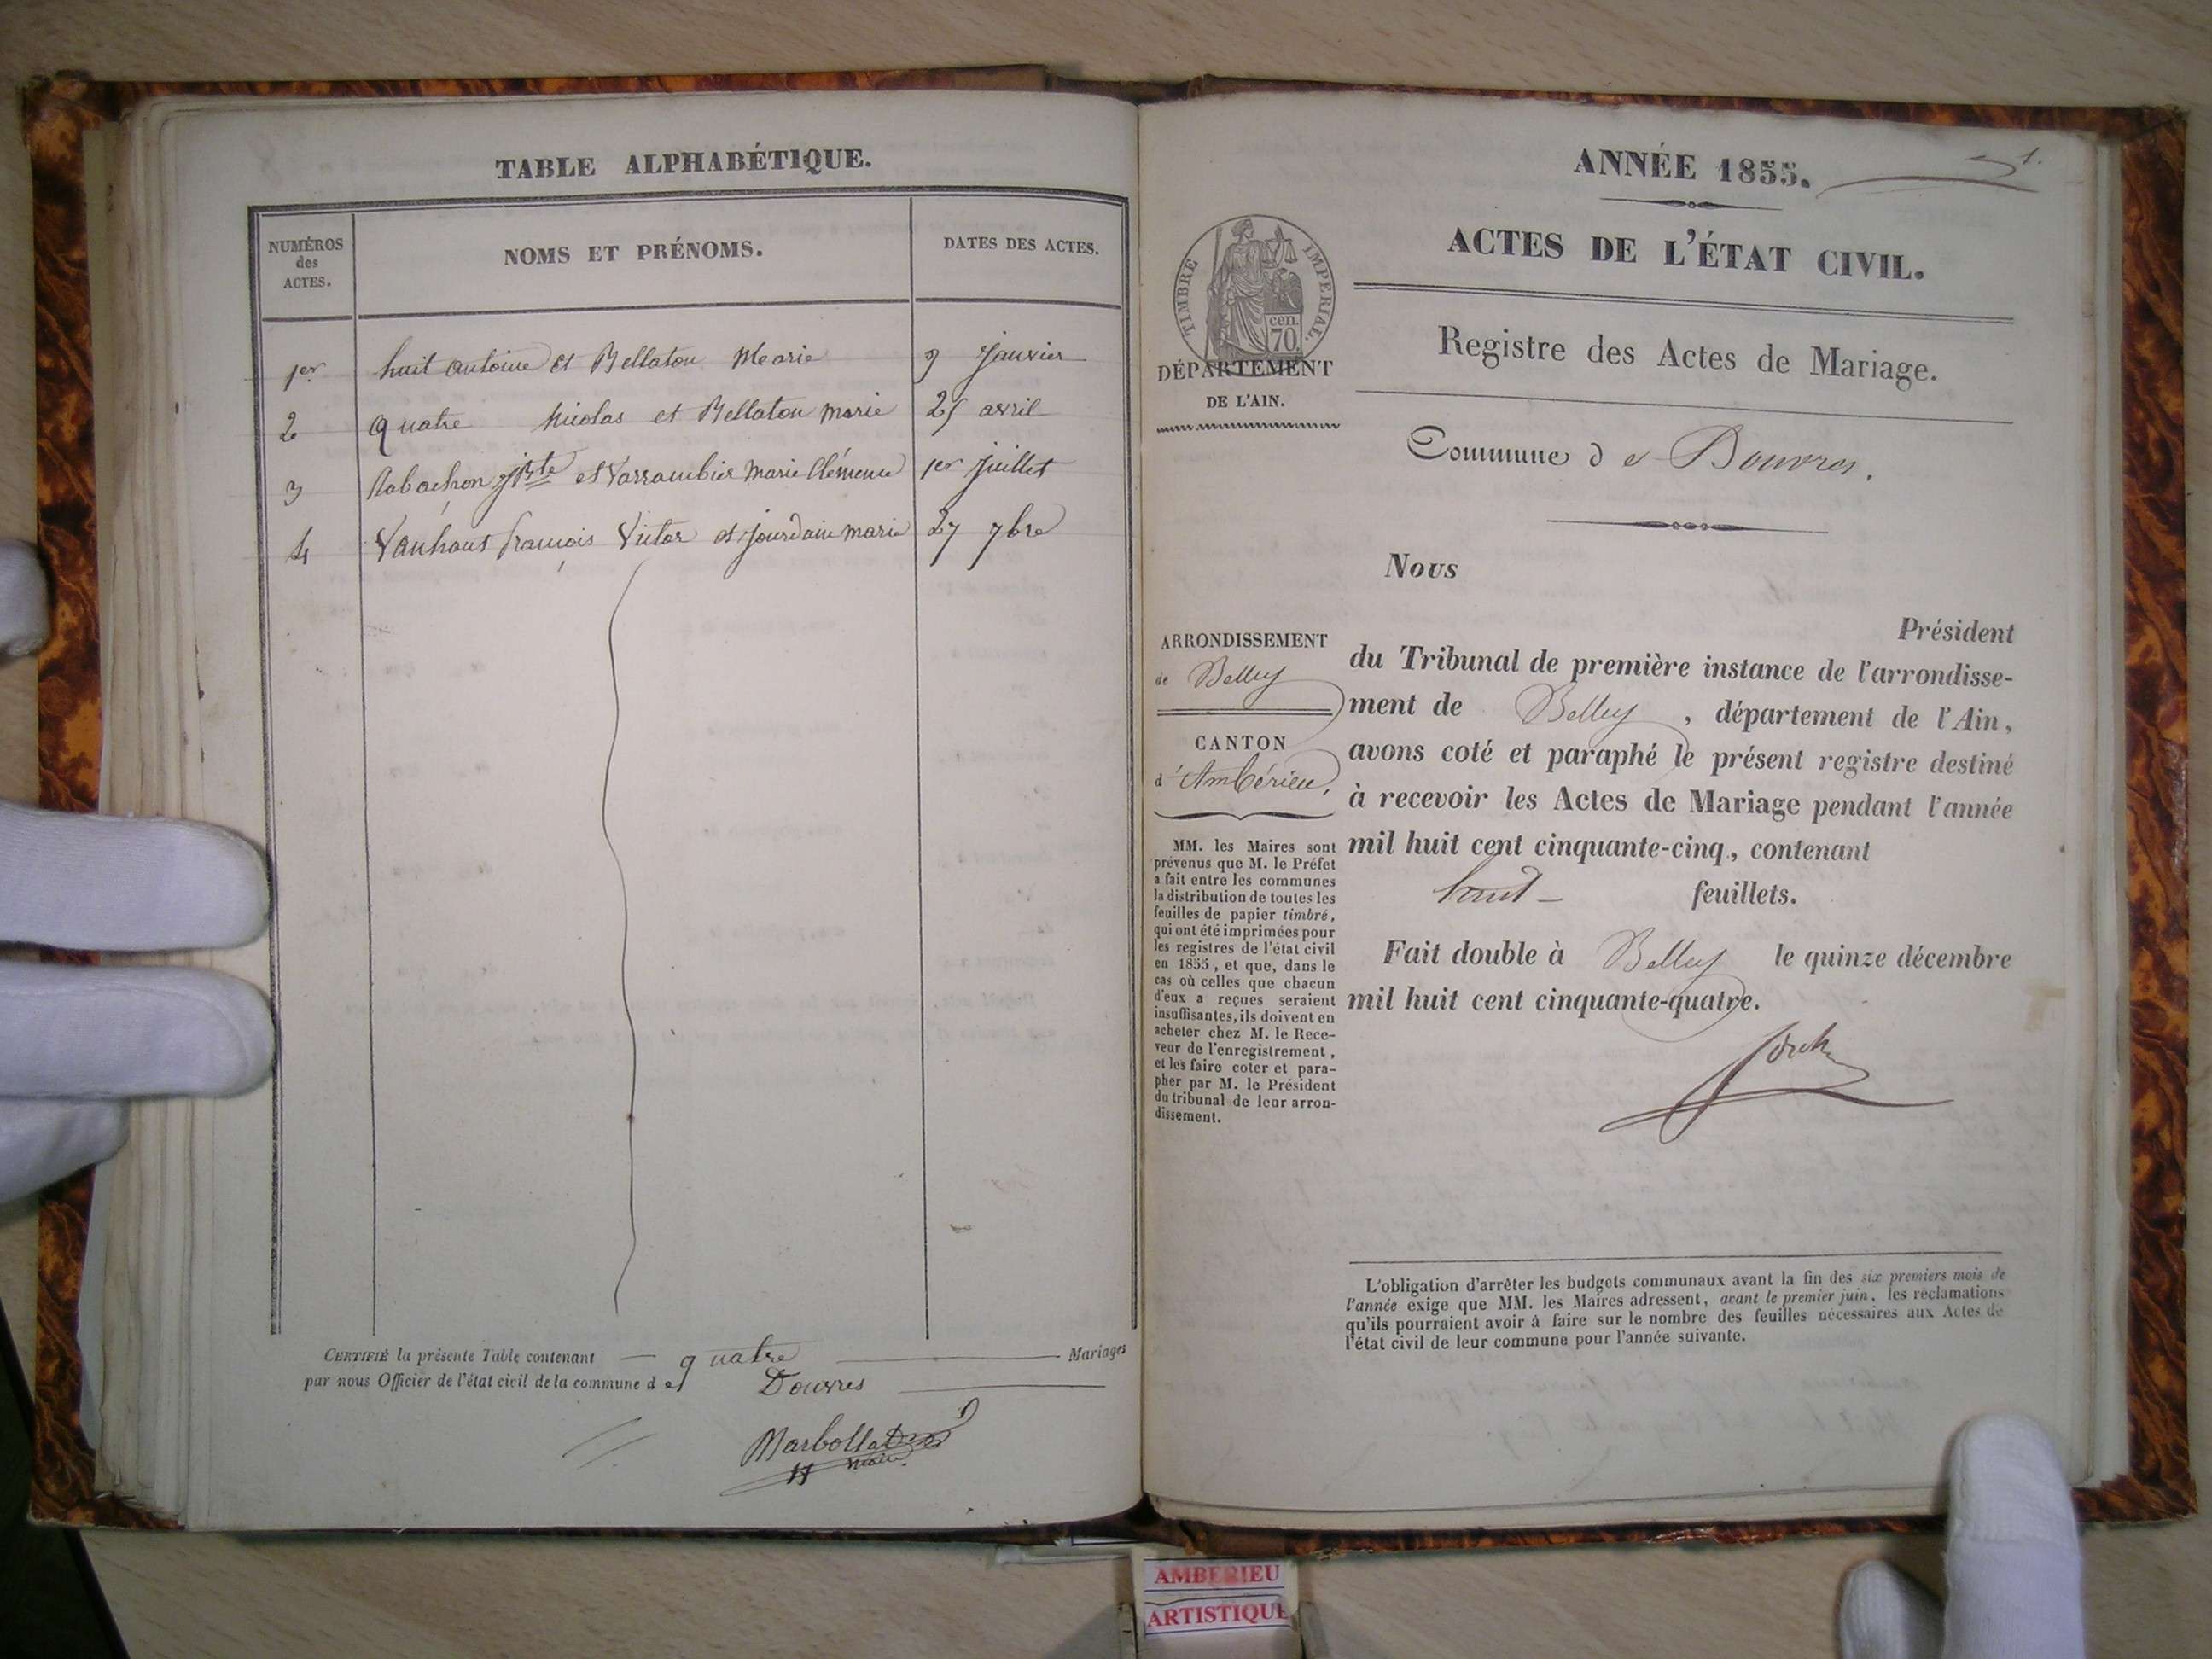 TABLE ALPHABÉTIQUE.
NUMÉROS
des
ACTES.
NOMS ET PRÉNOMS.
DATES DES ACTES.
1er huit antoine et Bellaton Marie 9 Janvier
2 quatre Nicolas et Bellaton marie 25 avril
3 Rabachon jBte et Varrambier Marie Clémence 1er juillet
4 Vanhout françois Victor et jourdain marie 27 7bre
CERTIFIÉ la présente Table contenant quatre Mariages
par nous Officier de l'état civil de la commune de Douvres
Marbollat
maire.
ANNÉE 1855.
1.
ACTES DE L'ÉTAT CIVIL.
TIMBRE IMPERIAL.
cen.
70.
DÉPARTEMENT
DE L'AIN.
Registre des Actes de Mariage.
Commune de Douvres.
ARRONDISSEMENT
de Belley
CANTON
d'Ambérieu,
MM. les Maires sont
prévenus que M. le Préfet
a fait entre les communes
la distribution de toutes les
feuilles de papier timbré,
qui ont été imprimées pour
les registres de l'état civil
en 1855, et que, dans le
cas où celles que chacun
d'eux a reçues seraient
insuffisantes, ils doivent en
acheter chez M. le Rece-
veur de l'enregistrement,
et les faire coter et para-
pher par M. le Président
du tribunal de leur arron-
dissement.
Nous
Président
du Tribunal de première instance de l'arrondisse-
ment de Belley, département de l'Ain,
avons coté et paraphé le présent registre destiné
à recevoir les Actes de Mariage pendant l'année
mil huit cent cinquante-cinq, contenant
huit feuillets.
Fait double à Belley le quinze décembre
mil huit cent cinquante-quatre.
L'obligation d'arrêter les budgets communaux avant la fin des six premiers mois de
l'année exige que MM. les Maires adressent, avant le premier juin, les réclamations
qu'ils pourraient avoir à faire sur le nombre des feuilles nécessaires aux Actes de
l'état civil de leur commune pour l'année suivante.
AMBERIEU
ARTISTIQUE